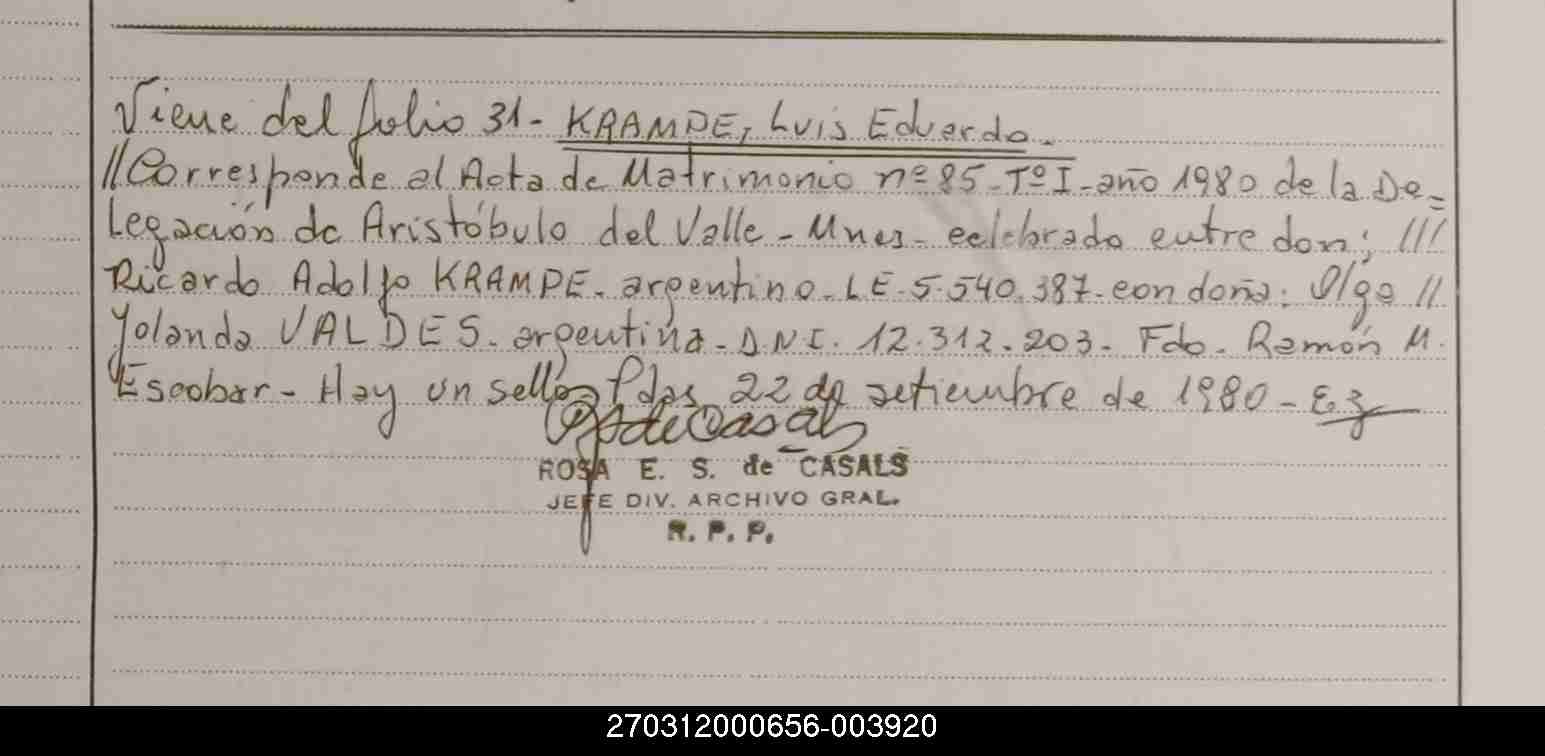 Viene del folio 31- KRAMPE, Luis Eduardo.
//Corresponde al Acta de Matrimonio nº 85-Tº I-año 1980 de la De=
Legación de Aristóbulo del Valle-Mnes- celebrado entre don; ///
Ricardo Adolfo KRAMPE. argentino-LE-5.540.387-con doña: Olga //
Yolanda VALDES. argentina-DNI. 12.312.203- Fdo. Ramón M.
Escobar- Hay un sello Pdas 22 de setiembre de 1980-
ROSA E. S. de CASALS
JEFE DIV. ARCHIVO GRAL.
R. P. P.
270312000656-003920